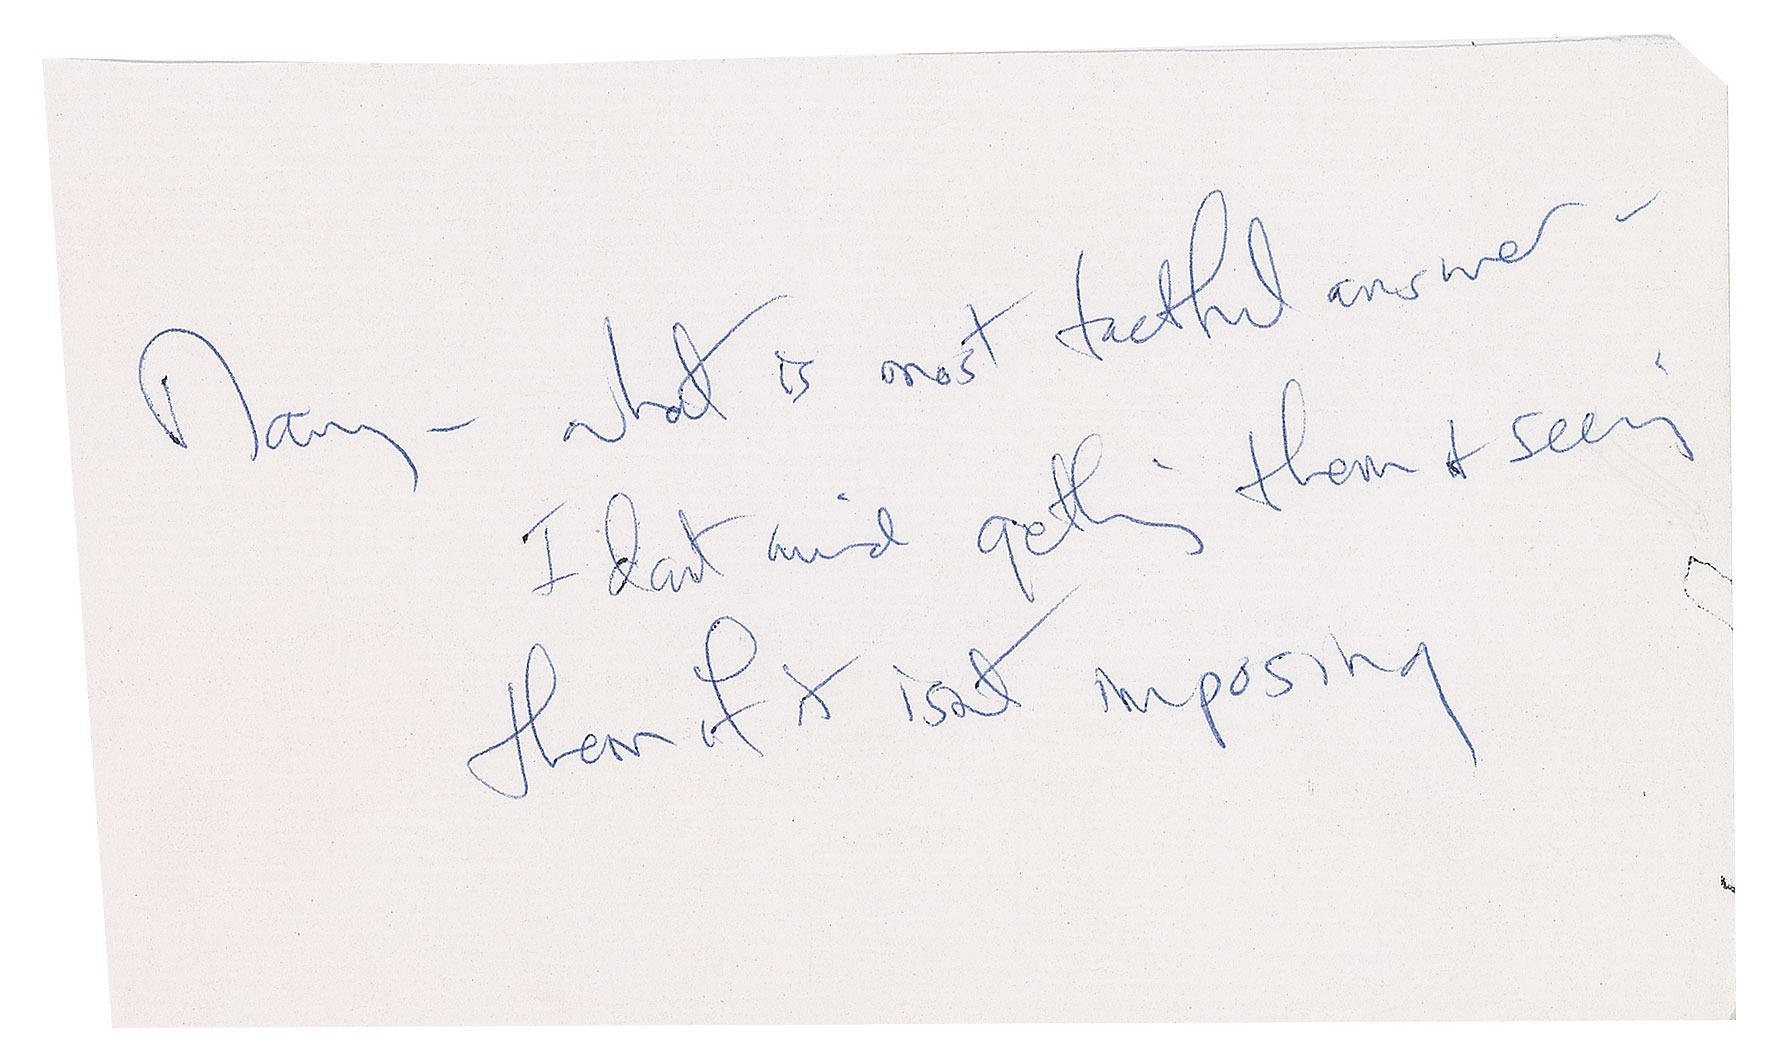 Mary – what is most tactful answer –
I dont mind getting them & seeing
them if it isnt imposing